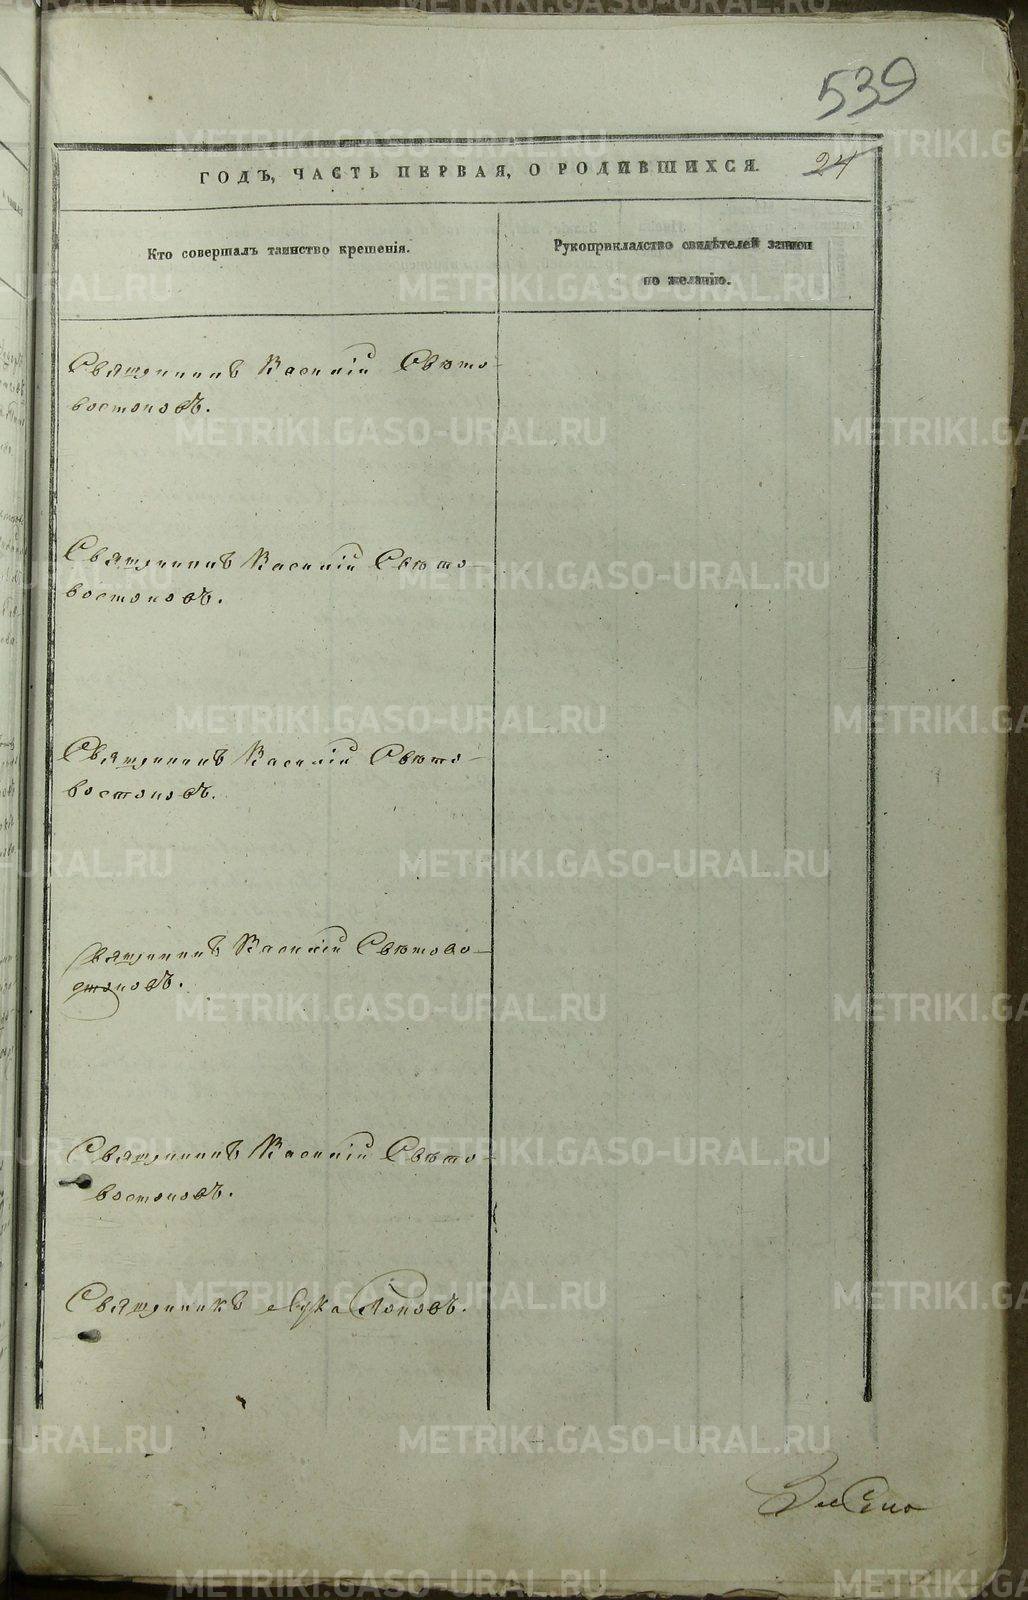 539
ГОДЪ, ЧАСТЬ ПЕРВАЯ, О РОДИВШИХСЯ. 24
Кто совершалъ таинство крещенія.
Рукоприкладство свидѣтелей записи
по желанію.
Священникъ Василій Свѣто-
востоковъ.
Священникъ Василій Свѣто-
востоковъ.
Священникъ Василій Свѣто-
востоковъ.
Священникъ Василій Свѣтово-
стоковъ.
Священникъ Василій Свѣто-
востоковъ.
Священникъ Лука Поповъ.
METRIKI.GASO-URAL.RU